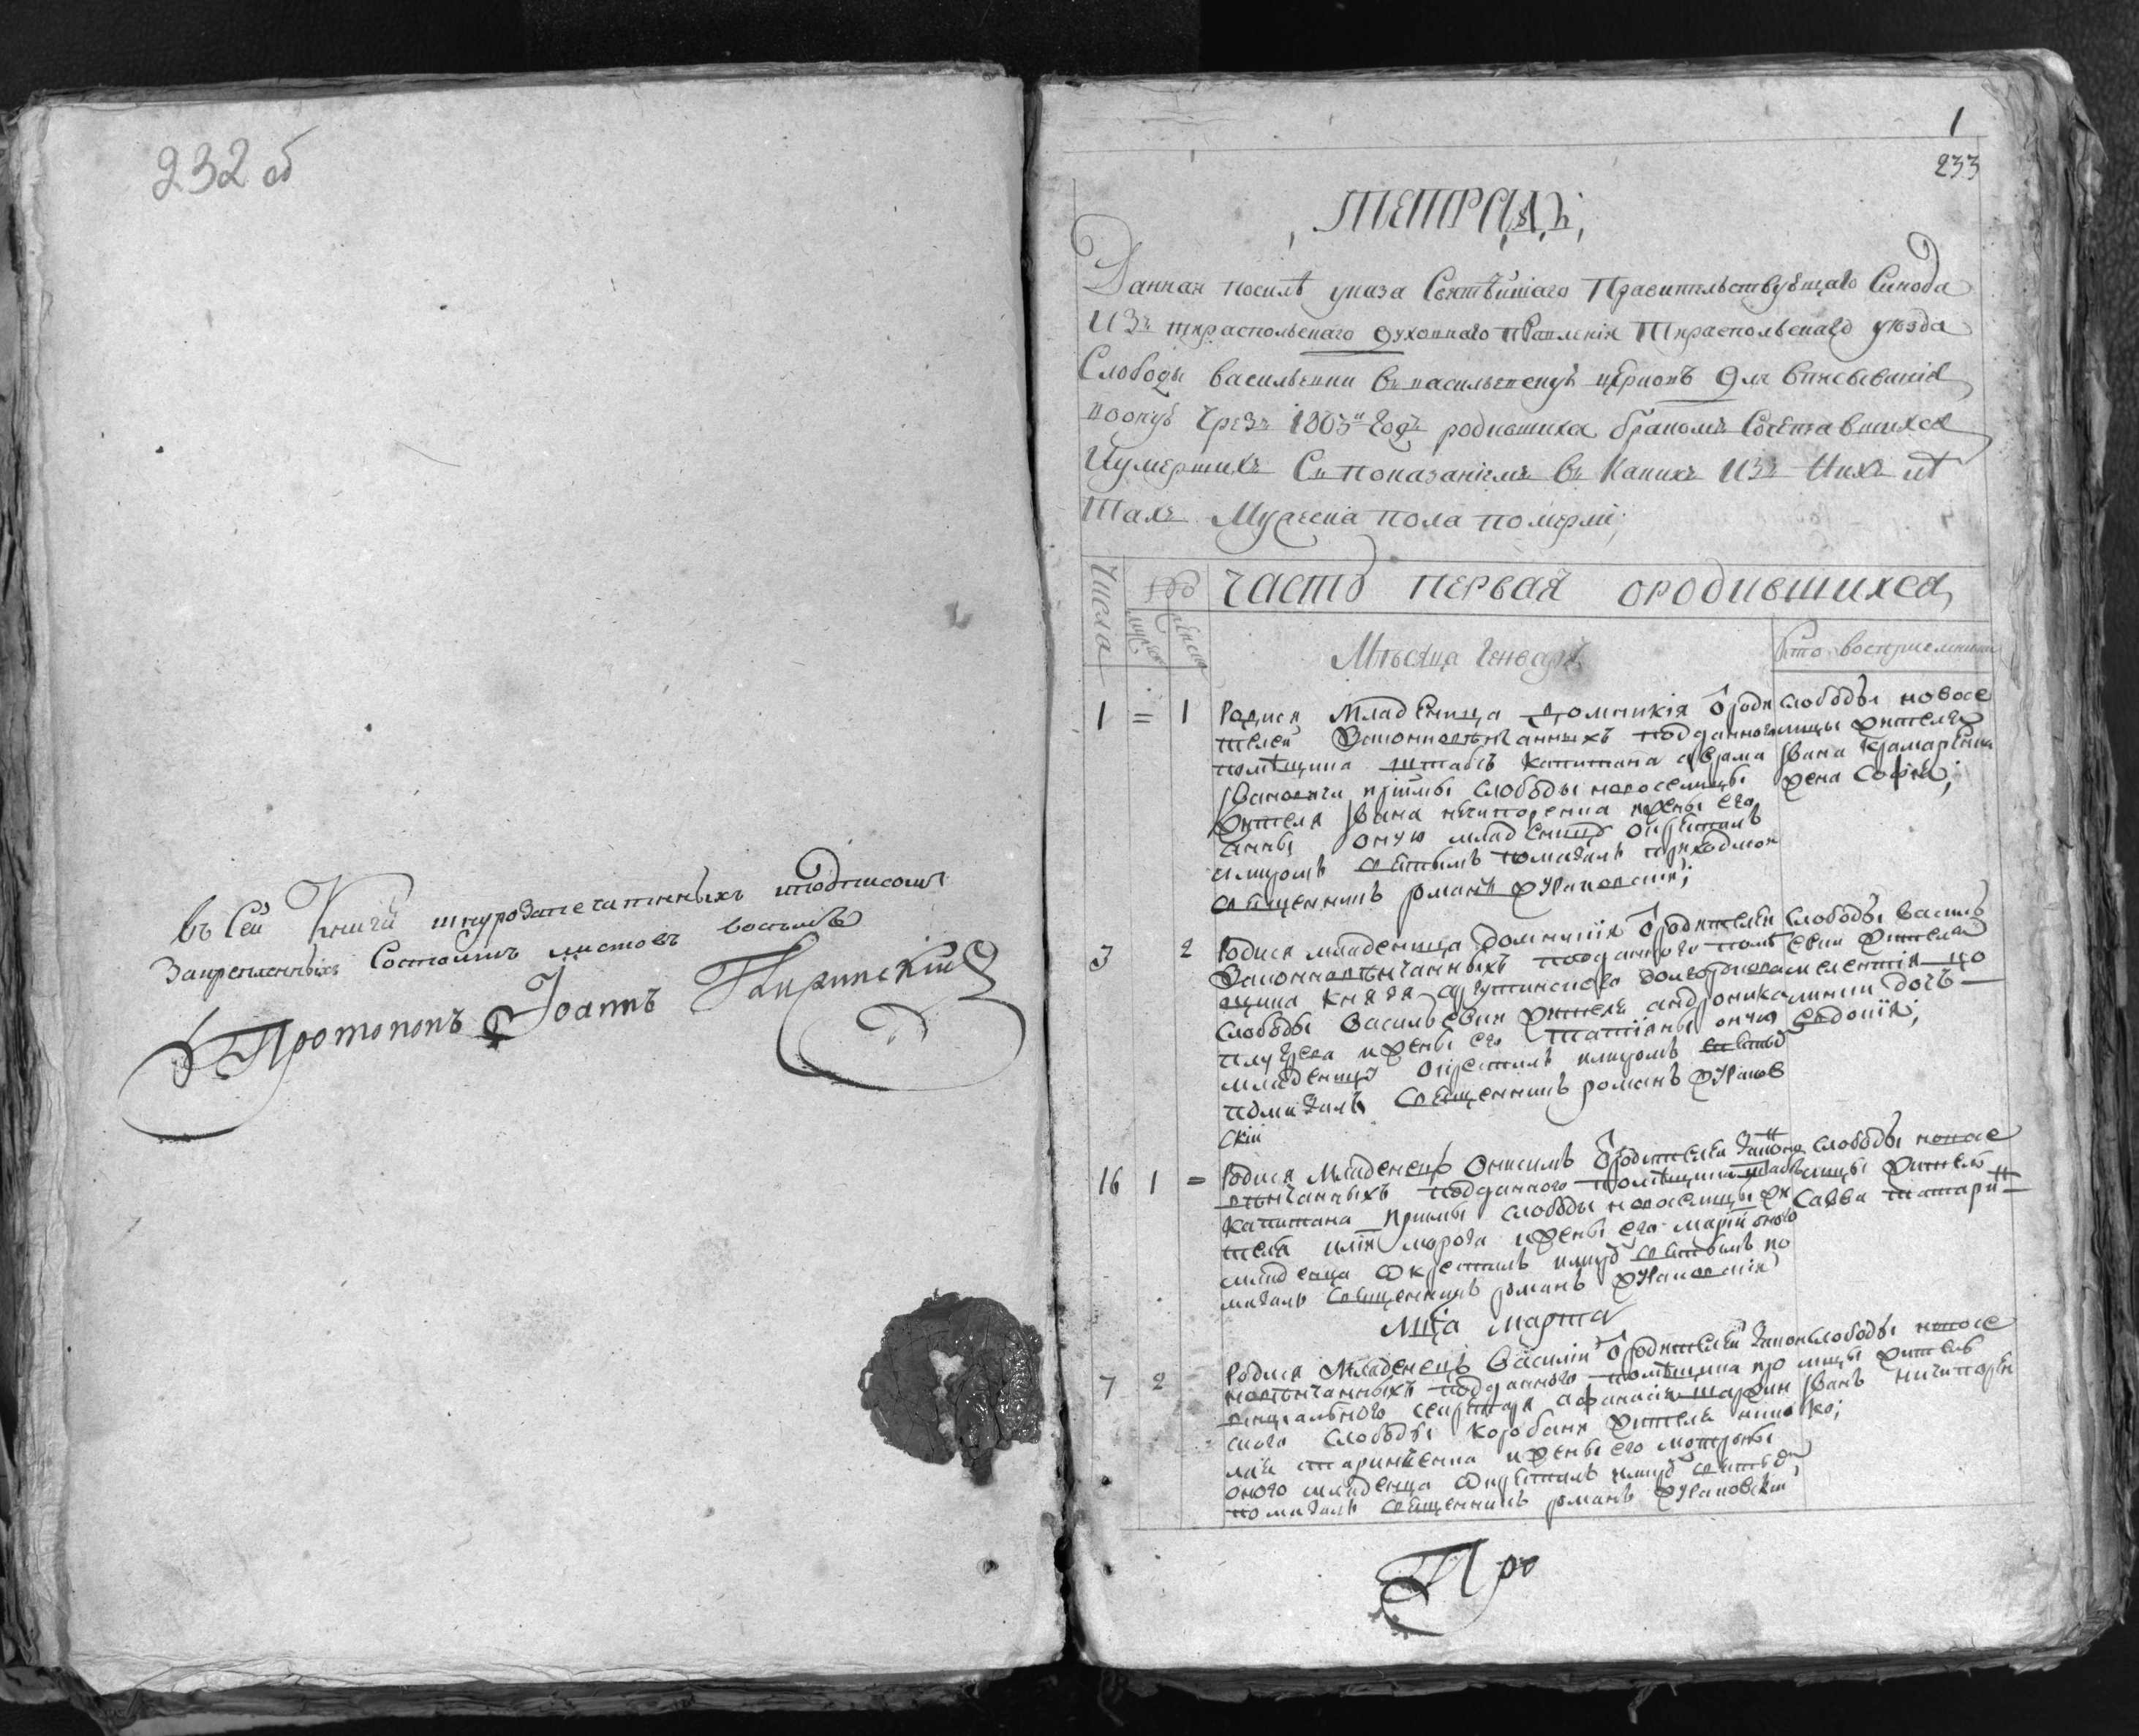 232 об
въ сей Книги шнурозапечатанныхъ иподписомъ
Закрепленныхъ Состоитъ листовъ восемъ
Протопопъ Іоаннъ
1
233
ТЕТРАДЬ
Данная посилѣ указа Святѣйшаго Правительствующаго Синода
Изъ тираспольскаго духовнаго правленія Тираспольскаго уѣзда
Слободы васильевки въ васильевскую церковъ для вписыванія
Чрезъ 1803й Годъ родившихся бракомъ Сочетавшихся
Иумершихъ Съ показаніемъ въ Какихъ Изъ Нихъ лѣ
Тахъ Мужеска пола померли;
Числа
часть первая ородившихся
Мѣсяца Генваря
Кто восприемники
1 = 1 Родися Младеница Домникія ѿроди
телей Законновѣнчанныхъ подданного
помѣщика штабсъ капитана аврама
Ивановича слободы новоселицы
жителя Ивана ничипоренка ижены его
анны оную младеницу окрестилъ
имуромъ святымъ помазалъ приходской
священникъ романъ
слободы новосе
лицы жителя
Ивана Крамаренка
жена Софія;
3 2 Родися младеница Домникія ѿродителей
Законновѣнчанныхъ подданного помѣ
щика Князя аргутинского долгорукова
слободы Васильевки жителя андроника
ижены его Татіяны оную
младеницу окрестилъ имуромъ святымъ
помазалъ Священникъ романъ
скій
слободы василь
евки жителя
мелентія
дочь
Евдокія;
16 1 = Родися Младенецъ Онисимъ ѿродителей законно
вѣнчанныхъ подданного помѣщика штабсъ
капитана слободы новоселицы жи
теля иліи мороза ижены его маріи оного
младенца окрестилъ имуромъ святымъ по
мазалъ Священникъ романъ
слободы новосе
лицы житель
Савва татарин
Мца марта
7 2 Родися Младенецъ Василій ѿродителей закон
новѣнчанныхъ подданного помѣщика про
винціального секретаря афанасія
ского слободы Коробани жителя нико
лая ижены его мотроны
оного младенца окрестилъ имуромъ святымъ
помазалъ священникъ романъ
слободы новосе
лицы житель
Иванъ ничипорен
ко;
Про